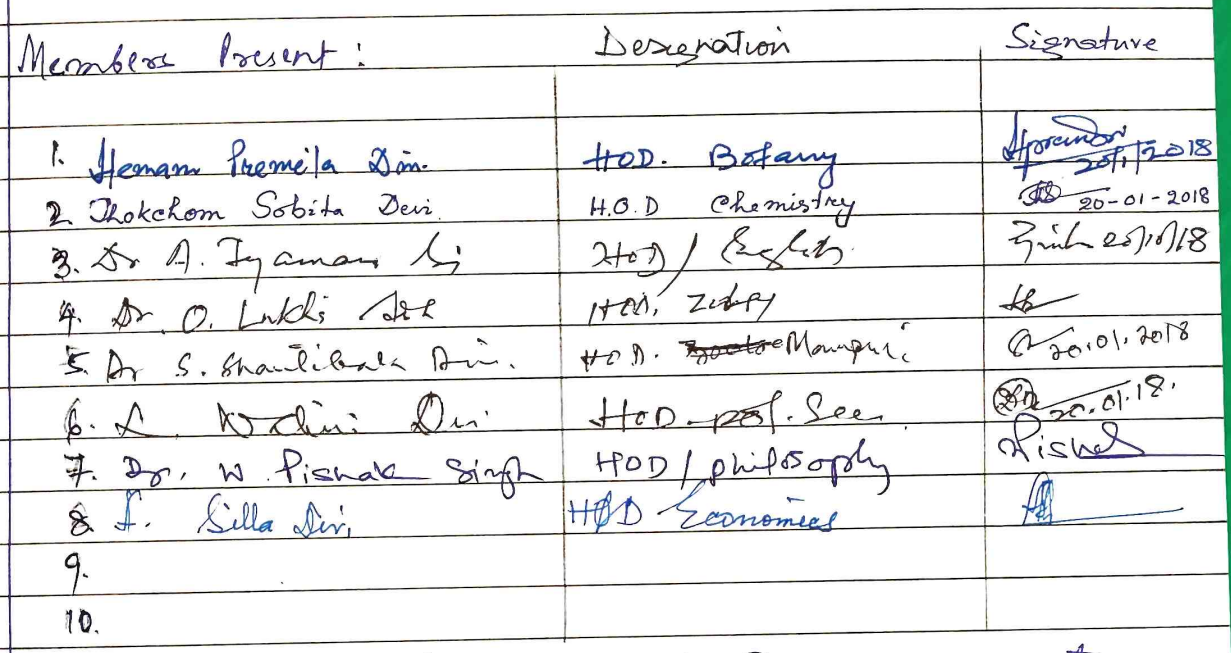 Members Present : Designation Signature
1. Hemam Premila Devi HOD. Botany 20/1/2018
2. Thokchom Sobita Devi H.O.D Chemistry 20-01-2018
3. Dr A. HOD / English
4. Dr. O. HOD,
5. Dr S. Shantibala Devi. HOD. Manipuri 20.01.2018
6. L. Devi HOD. pol. 20.01.18.
7. Dr. W. Pishak Singh HOD / philosophy Pishak
8. Silla Devi HOD Economics
9.
10.